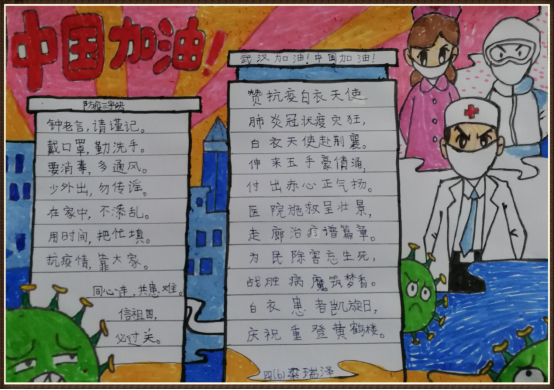 中国加油!
防疫三字歌
钟老言,请谨记。
戴口罩,勤洗手。
要消毒,多通风。
少外出,勿传谣。
在家中,不添乱。
用时间,把忙填。
抗疫情,靠大家。
同心连,共患难。
信祖国,
必过关。
武汉加油!中国加油!
赞抗疫白衣天使
肺炎冠状疫灾狂,
白衣天使赴荆襄。
伸来五手豪情涌,
付出赤心正气扬。
医院施救呈壮景,
走廊治疗谱篇章。
为民除害忘生死,
战胜病魔筑梦香。
白衣患者凯旋日,
庆祝重登黄鹤楼。
四(6) 梁瑞泽